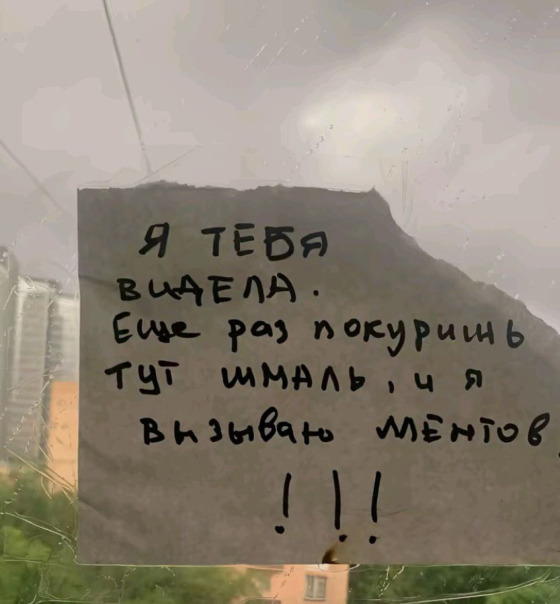 Я ТЕБЯ
ВИДЕЛА.
Еще раз покуришь
тут шмаль, и я
вызываю ментов.
!!!